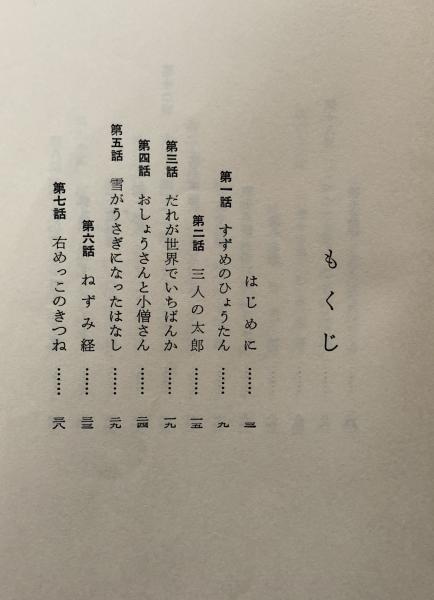 もくじ
はじめに……三
第一話 すずめのひょうたん……九
第二話 三人の太郎……一五
第三話 だれが世界でいちばんか……一九
第四話 おしょうさんと小僧さん……二四
第五話 雪がうさぎになったはなし……二九
第六話 ねずみ経……三三
第七話 右めっこのきつね……三八